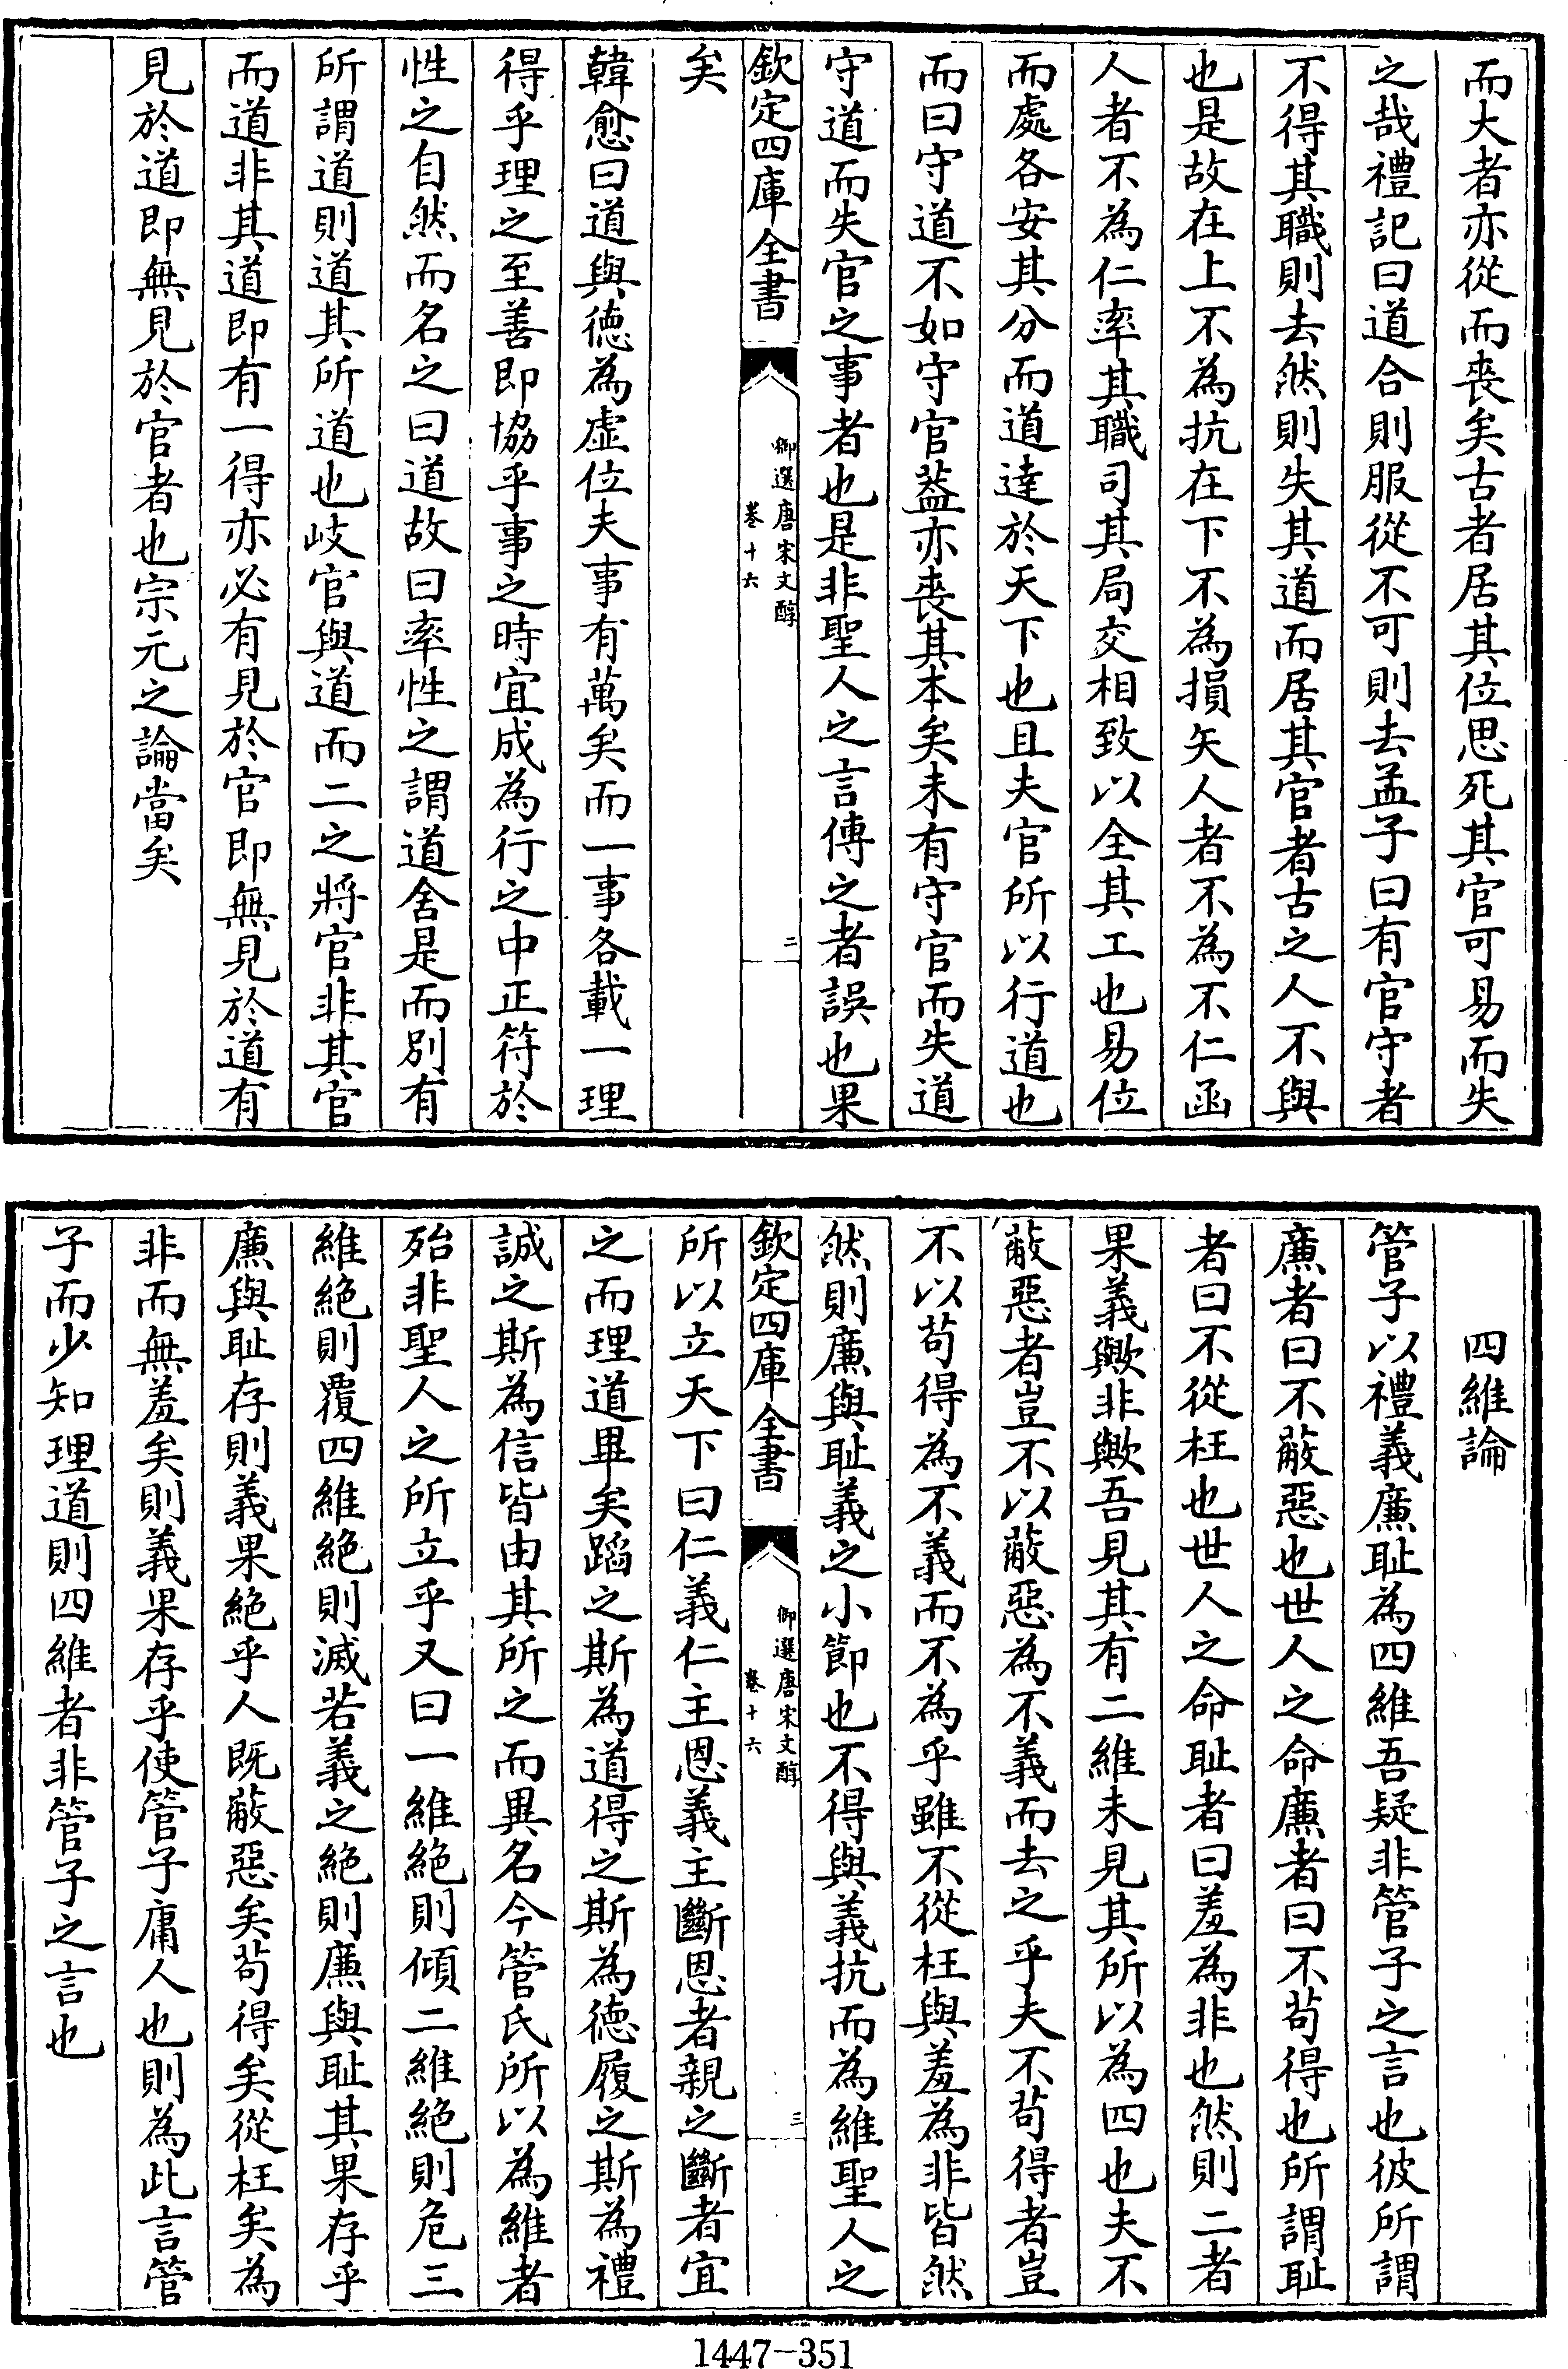 而大者亦從而喪矣古者居其位思死其官可易而失
之哉禮記曰道合則服從不可則去孟子曰有官守者
不得其職則去然則失其道而居其官者古之人不與
也是故在上不為抗在下不為損矢人者不為不仁函
人者不為仁率其職司其局交相致以全其工也易位
而處各安其分而道達於天下也且夫官所以行道也
而曰守道不如守官葢亦喪其本矣未有守官而失道
守道而失官之事者也是非聖人之言傳之者誤也果
欽定四庫全書
御選唐宋文醇
卷十六
二
矣
韓愈曰道與德為虛位夫事有萬矣而一事各載一理
得乎理之至善即協乎事之時宜成為行之中正符於
性之自然而名之曰道故曰率性之謂道舍是而別有
所謂道則道其所道也岐官與道而二之將官非其官
而道非其道即有一得亦必有見於官即無見於道有
見於道即無見於官者也宗元之論當矣
四維論
管子以禮義廉耻為四維吾疑非管子之言也彼所謂
廉者曰不蔽惡也世人之命廉者曰不苟得也所謂耻
者曰不從枉也世人之命耻者曰羞為非也然則二者
果義歟非歟吾見其有二維未見其所以為四也夫不
蔽惡者豈不以蔽惡為不義而去之乎夫不苟得者豈
不以苟得為不義而不為乎雖不從枉與羞為非皆然
然則廉與耻義之小節也不得與義抗而為維聖人之
欽定四庫全書
御選唐宋文醇
卷十六
三
所以立天下曰仁義仁主恩義主斷恩者親之斷者宜
之而理道畢矣蹈之斯為道得之斯為德履之斯為禮
誠之斯為信皆由其所之而異名今管氏所以為維者
殆非聖人之所立乎又曰一維絕則傾二維絕則危三
維絕則覆四維絕則滅若義之絕則廉與耻其果存乎
廉與耻存則義果絕乎人既蔽惡矣苟得矣從枉矣為
非而無羞矣則義果存乎使管子庸人也則為此言管
子而少知理道則四維者非管子之言也
1447-351